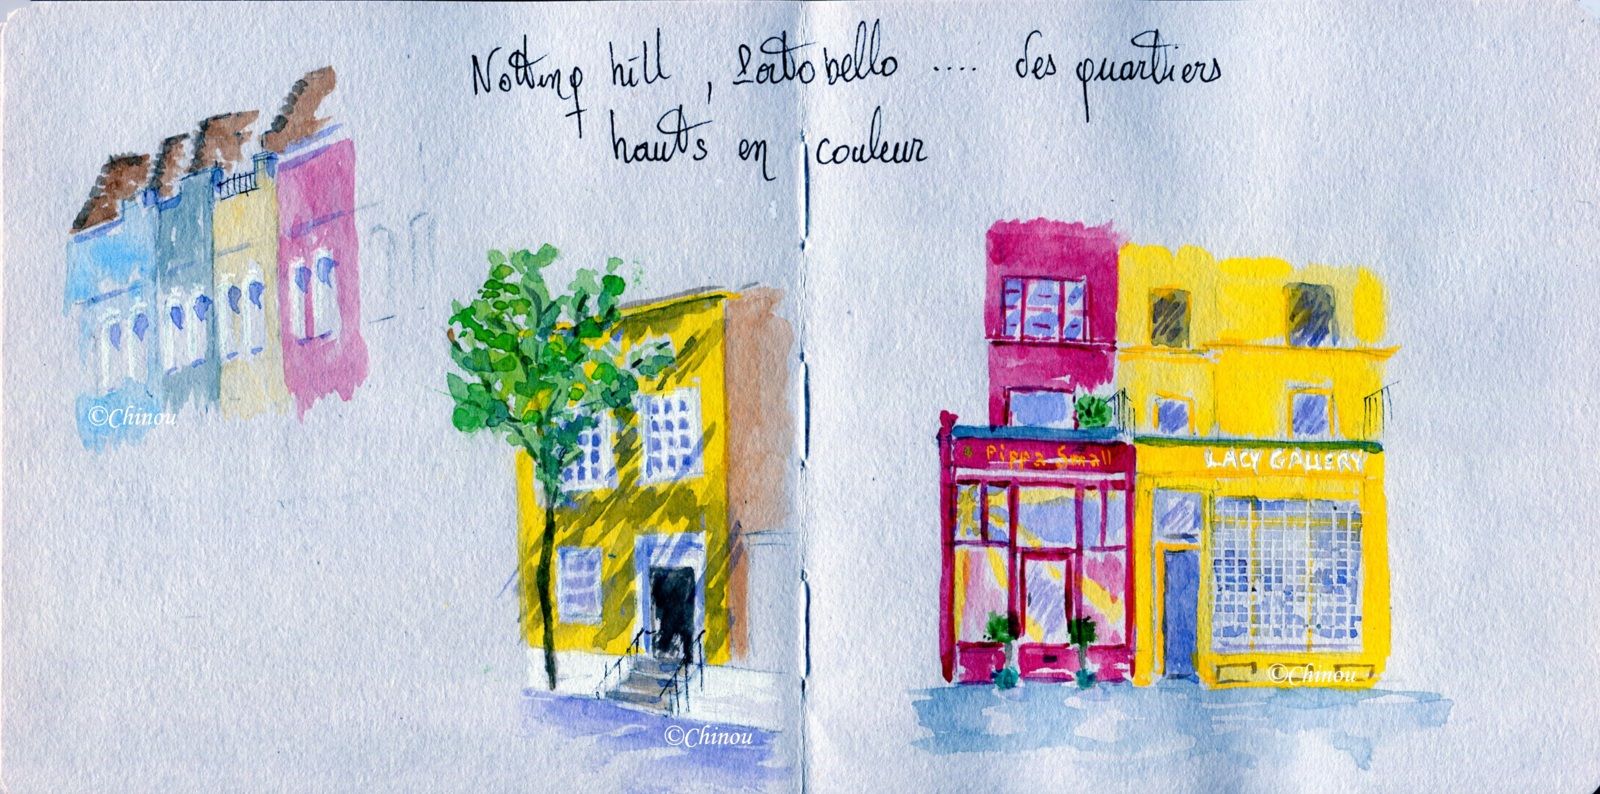 Notting hill, Portobello .... des quartiers
hauts en couleur
©Chinou
Pippa Small
LACY GALLERY
©Chinou
©Chinou